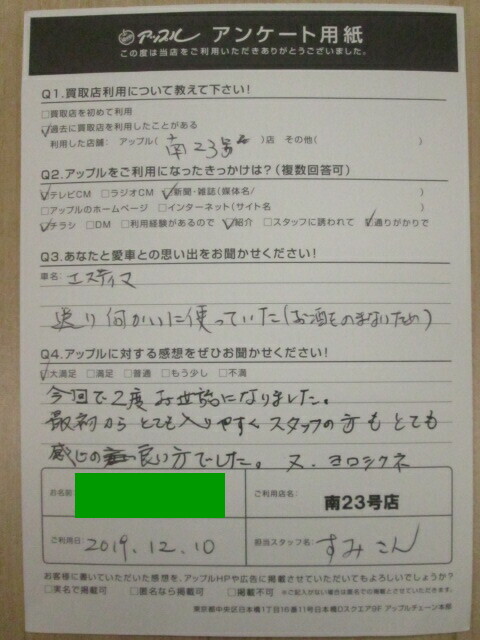 アップル アンケート用紙
この度は当店をご利用いただきありがとうございました。
Q1.買取店利用について教えて下さい!
□買取店を初めて利用
☑過去に買取店を利用したことがある
利用した店舗: アップル( 南23号 )店 その他( )
Q2.アップルをご利用になったきっかけは?(複数回答可)
☑テレビCM □ラジオCM ☑新聞・雑誌(媒体名/ )
□アップルのホームページ □インターネット(サイト名 )
☑チラシ □DM □利用経験があるので ☑紹介 □スタッフに誘われて ☑通りがかりで
Q3.あなたと愛車との思い出をお聞かせください!
車名: エスティマ
送り 何かいに使っていた(お酒をのまないため)
Q4.アップルに対する感想をぜひお聞かせください!
☑大満足 □満足 □普通 □もう少し □不満
今回で2度 お世話になりました。
最初から とても入りやすく スタッフの方も とても
感じの 良い方でした。 又、ヨロシクネ
お名前
ご利用店名: 南23号店
ご利用日: 2019.12.10 担当スタッフ名: すみ さん
お客様に書いていただいた感想を、アップルHPや広告に掲載させていただいてもよろしいでしょうか?
□実名で掲載可 □匿名なら掲載可 □掲載不可 ※ご記入がない場合は匿名での掲載とさせていただきます。
東京都中央区日本橋1丁目16番11号日本橋Dスクエア9F アップルチェーン本部